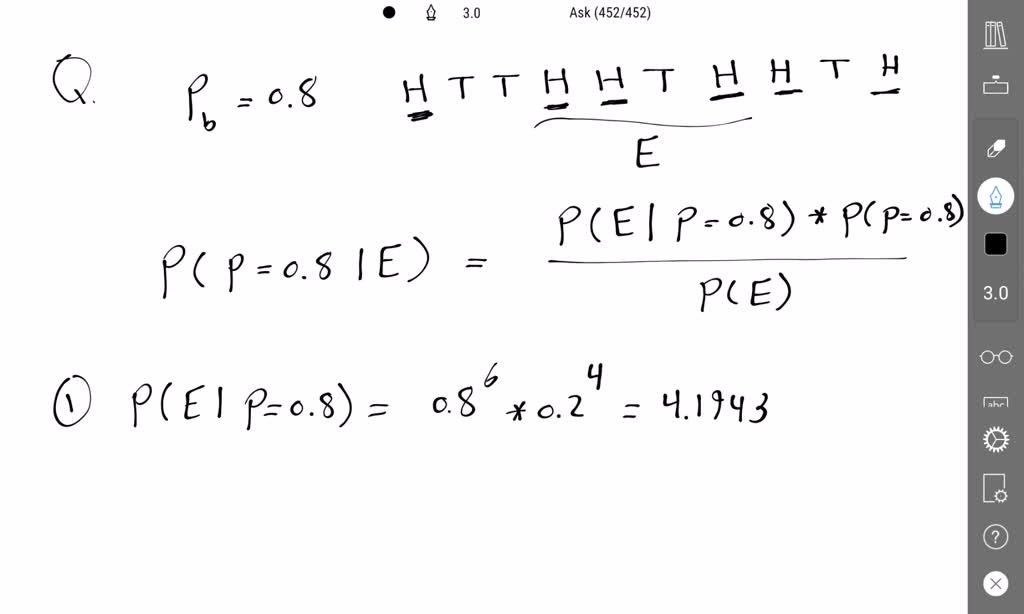 3.0 Ask (452/452)
Q. P_b = 0.8 H T T H H T H H T H
E
P( P = 0.8 | E ) = P( E | P = 0.8 ) * P( P = 0.8 ) / P( E )
① P( E | P = 0.8 ) = 0.8^6 * 0.2^4 = 4.1943
3.0
abc
?